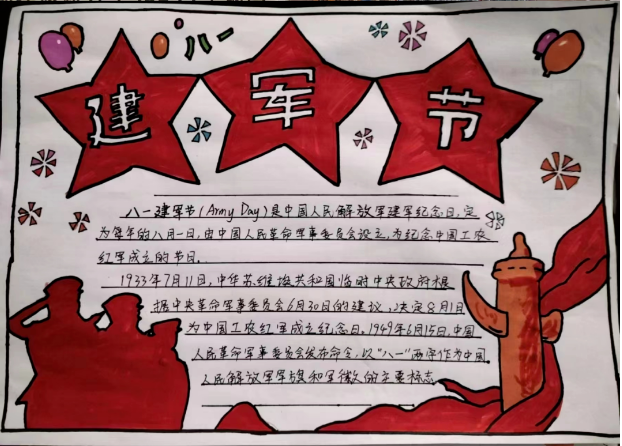 八一
建军节
八一建军节(Army Day)是中国人民解放军建军纪念日,定
为每年的八月一日,由中国人民革命军事委员会设立,为纪念中国工农
红军成立的节日.
1933年7月11日,中华苏维埃共和国临时中央政府根
据中央革命军事委员会6月30日的建议,决定8月1日
为中国工农红军成立纪念日.1949年6月15日,中国
人民革命军事委员会发布命令,以"八一"两字作为中国
人民解放军军旗和军徽的主要标志